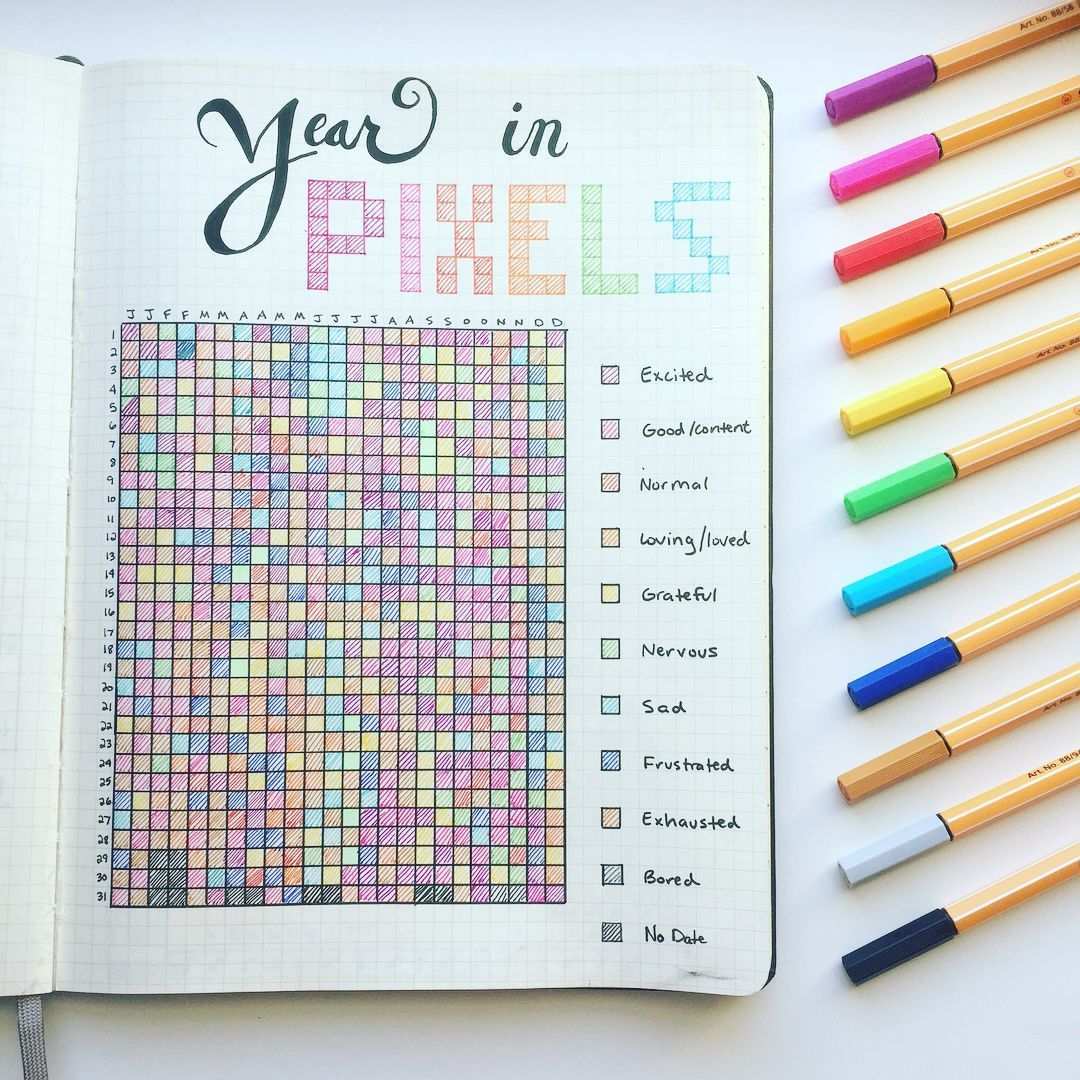 Year in
PIXELS
J J F F M M A A M M J J J J A A S S O O N N D D
1
2
3
4
5
6
7
8
9
10
11
12
13
14
15
16
17
18
19
20
21
22
23
24
25
26
27
28
29
30
31
Excited
Good/content
Normal
Loving/loved
Grateful
Nervous
Sad
Frustrated
Exhausted
Bored
No Date
Art. No. 88/58
Art. No. 88/
Art. No.